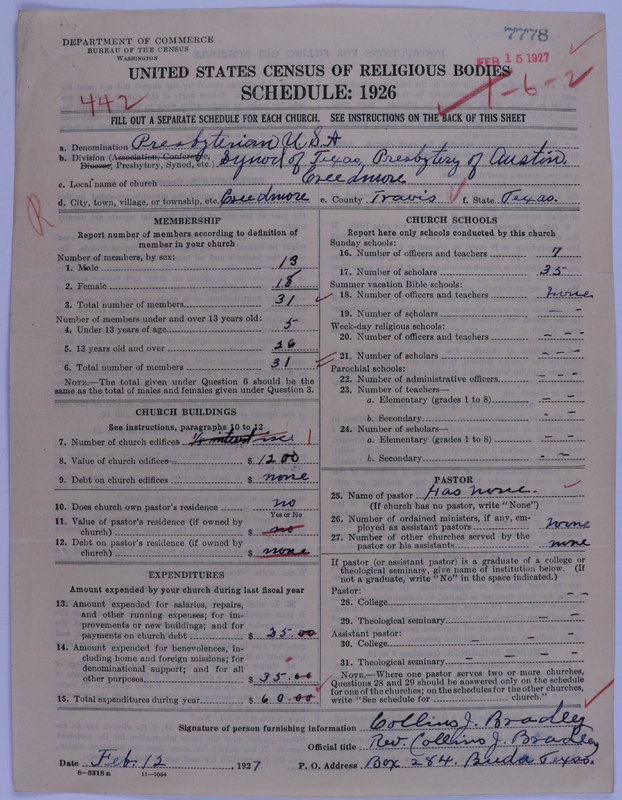 7778
DEPARTMENT OF COMMERCE
BUREAU OF THE CENSUS
WASHINGTON
FEB 15 1927
UNITED STATES CENSUS OF RELIGIOUS BODIES
SCHEDULE: 1926
1-6-2
442
FILL OUT A SEPARATE SCHEDULE FOR EACH CHURCH. SEE INSTRUCTIONS ON THE BACK OF THIS SHEET
a. Denomination Presbyterian U.S.A
b. Division (Association, Conference, Diocese, Presbytery, Synod, etc.) Synod of Texas, Presbytery of Austin.
c. Local name of church Creedmore
d. City, town, village, or township, etc. Creedmore e. County Travis f. State Texas.
R
MEMBERSHIP
Report number of members according to definition of
member in your church
Number of members, by sex:
1. Male 13
2. Female 18
3. Total number of members 31
Number of members under and over 13 years old:
4. Under 13 years of age 5
5. 13 years old and over 26
6. Total number of members 31
NOTE.—The total given under Question 6 should be
same as the total of males and females given under Question 3.
CHURCH BUILDINGS
See instructions, paragraphs 10 to 12
7. Number of church edifices 1/2 interest 1
8. Value of church edifices $ 1200
9. Debt on church edifices $ none
10. Does church own pastor's residence no
Yes or No
11. Value of pastor's residence (if owned by
church) $ no
12. Debt on pastor's residence (if owned by
church) $ none
EXPENDITURES
Amount expended by your church during last fiscal year
13. Amount expended for salaries, repairs,
and other running expenses; for im-
provements or new buildings; and for
payments on church debt $ 25.00
14. Amount expended for benevolences, in-
cluding home and foreign missions; for
denominational support; and for all
other purposes $ 35.00
15. Total expenditures during year $ 60.00
CHURCH SCHOOLS
Report here only schools conducted by this church
Sunday schools:
16. Number of officers and teachers 7
17. Number of scholars 35
Summer vacation Bible schools:
18. Number of officers and teachers none
19. Number of scholars - -
Week-day religious schools:
20. Number of officers and teachers - - -
21. Number of scholars - - -
Parochial schools:
22. Number of administrative officers - - -
23. Number of teachers—
a. Elementary (grades 1 to 8) - -
b. Secondary - -
24. Number of scholars—
a. Elementary (grades 1 to 8) - -
b. Secondary - -
PASTOR
25. Name of pastor Has none.
(If church has no pastor, write "None")
26. Number of ordained ministers, if any, em-
ployed as assistant pastors none
27. Number of other churches served by the
pastor or his assistants none
If pastor (or assistant pastor) is a graduate of a college or
theological seminary, give name of institution below. (If
not a graduate, write "No" in the space indicated.)
Pastor:
28. College - -
29. Theological seminary - - -
Assistant pastor:
30. College - - -
31. Theological seminary - - -
NOTE.—Where one pastor serves two or more churches,
Questions 28 and 29 should be answered only on the schedule
for one of the churches; on the schedules for the other churches,
write "See schedule for church."
Signature of person furnishing information Collins J. Bradley
Official title Rev. Collins J. Bradley
Date Feb. 12, 1927 P. O. Address Box 284. Buda Texas.
8-5518a 11-9054